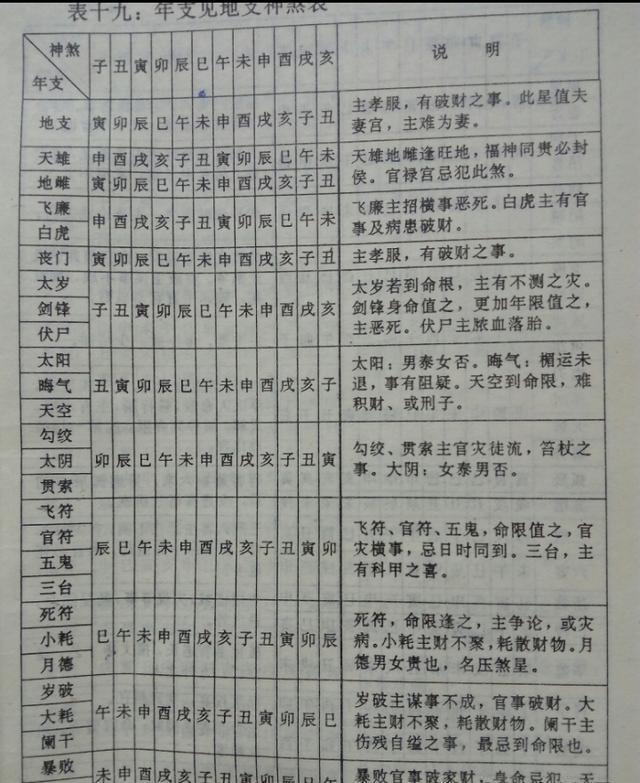 表十九：年支见地支神煞表
神煞
年支
子 丑 寅 卯 辰 巳 午 未 申 酉 戌 亥
说 明
地支
寅 卯 辰 巳 午 未 申 酉 戌 亥 子 丑
主孝服，有破财之事。此星值夫
妻宫，主难为妻。
天雄
申 酉 戌 亥 子 丑 寅 卯 辰 巳 午 未
地雌
寅 卯 辰 巳 午 未 申 酉 戌 亥 子 丑
天雄地雌逢旺地，福神同贵必封
侯。官禄宫忌犯此煞。
飞廉
白虎
申 酉 戌 亥 子 丑 寅 卯 辰 巳 午 未
飞廉主招横事恶死。白虎主有官
事及病患破财。
丧门
寅 卯 辰 巳 午 未 申 酉 戌 亥 子 丑
主孝服，有破财之事。
太岁
剑锋
伏尸
子 丑 寅 卯 辰 巳 午 未 申 酉 戌 亥
太岁若到命根，主有不测之灾。
剑锋身命值之，更加年限值之，
主恶死。伏尸主脓血落胎。
太阳
晦气
天空
丑 寅 卯 辰 巳 午 未 申 酉 戌 亥 子
太阳：男泰女否。晦气：楣运未
退，事有阻疑。天空到命限，难
积财、或刑子。
勾绞
太阴
贯索
卯 辰 巳 午 未 申 酉 戌 亥 子 丑 寅
勾绞、贯索主官灾徒流，笞杖之
事。大阴：女泰男否。
飞符
官符
五鬼
三台
辰 巳 午 未 申 酉 戌 亥 子 丑 寅 卯
飞符、官符、五鬼，命限值之，官
灾横事，忌日时同到。三台，主
有科甲之喜。
死符
小耗
月德
巳 午 未 申 酉 戌 亥 子 丑 寅 卯 辰
死符，命限逢之，主争论，或灾
病。小耗主财不聚，耗散财物。月
德男女贵也，名压煞星。
岁破
大耗
阑干
午 未 申 酉 戌 亥 子 丑 寅 卯 辰 巳
岁破主谋事不成，官事破财。大
耗主财不聚，耗散财物。阑干主
伤残自缢之事，最忌到命限也。
暴败
未 申 酉 戌 亥 子 丑 寅 卯 辰 巳 午
暴败官事破家财，身命忌犯。天